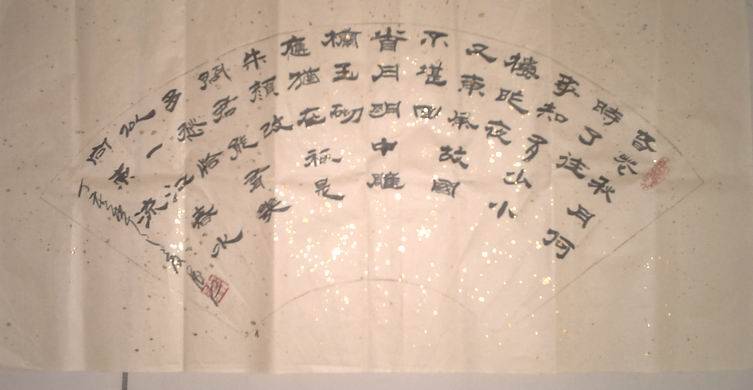 春花秋月何
時了往
事知多少小
樓昨夜
又東風故國
不堪回
首月明中雕
欄玉砌
應猶在祇是
朱顏改
問君能有幾
多愁恰
似一江春水
向東流
丁亥